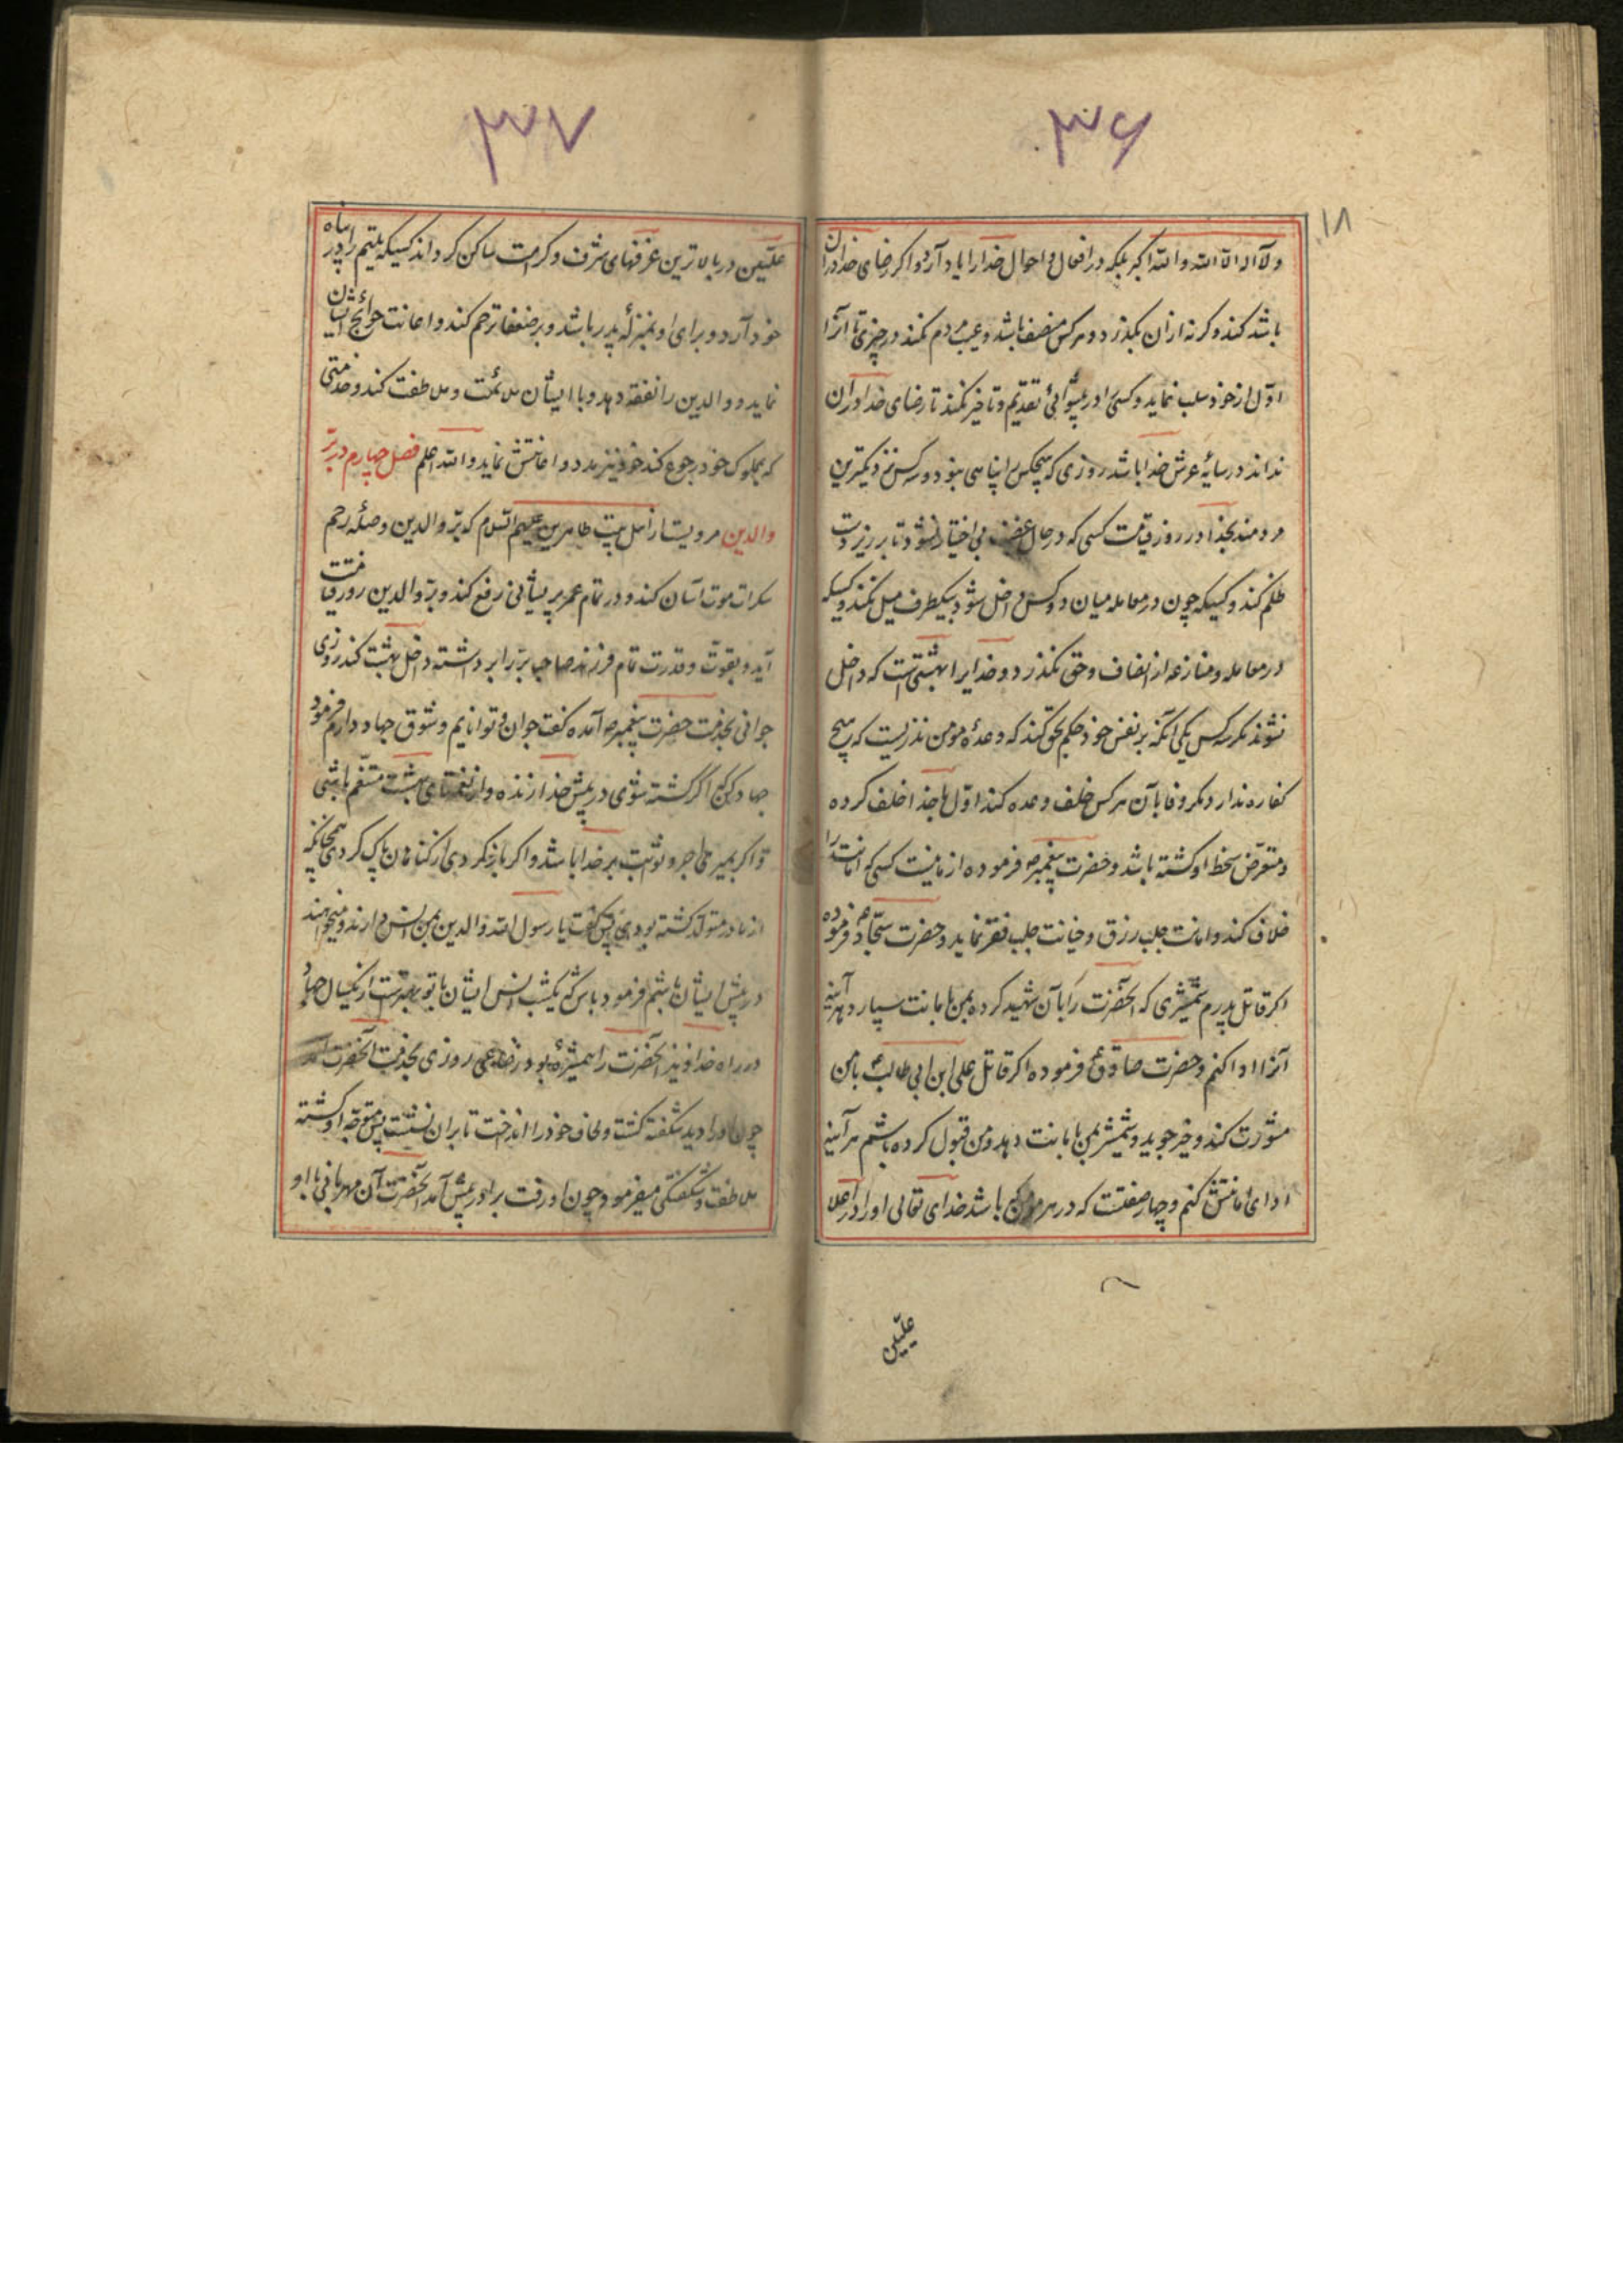 ۳۶
۱۸
ولا اله الا الله والله اکبر بلکه در افعال و احوال خدا را یاد آرد و اکر رضای خدا در ان
باشد کند وکرنه ازان بکذرد و هرکس منصف باشد و عیب مردم نکند در چیزی تا آنرا
اوّل از خود سلب نماید و کسی را در پیشوائی تقدیم و تاخیر نکند تا رضای خدا در ان
نداند در سایهٔ عرش خدا باشد روزی که هیچکس را پناهی نبود و سه کس نزدیکترین
مردمند بخدا در روز قیامت کسی که در حال غضب بی اختیار نشود تا بر زیردست
ظلم کند و کسیکه چون در معامله میان دو کس داخل شود بیکطرف میل نکند و کسیکه
در معامله و منازعه از انصاف و حق نکذرد و خدایرا بهشتی است که داخل
نشوند مکر سه کس یکی آنکه بر نفس خود حکم بحق کند که وعدهٔ مومن نذریست که هیچ
کفاره ندارد مکر وفا بآن هرکس خلف وعده کند اوّل با خدا خلف کرده
و متعرّض سخط او کشته باشد و حضرت پیغمبرص فرموده از ما نیست کسی که امانت را
خلاف کند و امانت جلب رزق و خیانت جلب فقر نماید و حضرت سجّادع فرموده
اکر قاتل پدرم شمشیری که آنحضرت را بآن شهید کرده بمن بامانت سپارد هرآینه
آنرا ادا کنم و حضرت صادقع فرموده اکر قاتل علی ابن ابی طالبع با من
مشورت کند و خیر جوید و شمشیر بمن بامانت دهد و من قبول کرده باشم هرآینه
ادای امانتش کنم و چهار صفتست که در هر مومن باشد خدای تعالی او را در اعلا
علیین
۳۷
علیّین در بالاترین غرفهای شرف و کرامت ساکن کرداند کسیکه یتیم را در پناه
خود آرد و برای او بمنزلهٔ پدر باشد و بر ضعفا ترحم کند و اعانت حوائج ایشان
نماید و والدین را نفقه دهد و با ایشان ملائمت و ملاطفت کند و خدمتی
که بمملوک خود رجوع کند خود نیز مدد و اعانتش نماید والله اعلم فصل چهارم در برّ
والدین مرویست از اهل بیت طاهرین علیهم السّلام که برّ والدین و صلهٔ رحم
سکرات موت آسان کند و در تمام عمر پریشانی رفع کند و برّ والدین روز قیامت
آید و بقوت و قدرت تمام فرزند صاحب برّ را برداشته داخل بهشت کند روزی
جوانی بخدمت حضرت پیغمبرص آمده کفت جوان و توانایم و شوق جهاد دارم فرمود
جهاد کن که اگر کشته شوی در پیش خدا زنده و از نعمتهای بهشت متنعّم باشی
و اکر بمیری اجر و ثوابت بر خدا باشد و اکر باز کردی از کناهان پاک کردی همچنانکه
از مادر متولّد کشته بودی پس کفت یا رسول الله والدین بمن انس دارند و میخواهند
در پیش ایشان باشم فرمود باش که یکشب انس ایشان با تو بهتر است از یکسال جهاد
در راه خدا و نیز آنحضرت را همشیرهٔ بود رضاعی روزی بخدمت آنحضرت آمد
چون او را دید شکفته کشت و لحاف خود را انداخت تا بران نشست پس متوجّه او کشته
ملاطفت و شکفتکی میفرمود چون او رفت برادرش آمد آنحضرت آن مهربانی با او